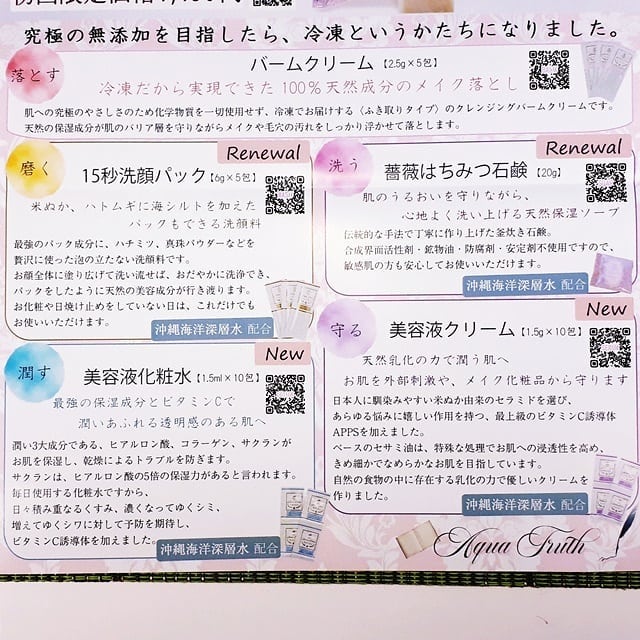 究極の無添加を目指したら、冷凍というかたちになりました。
落とす
バームクリーム【2.5g×5包】
冷凍だから実現できた 100%天然成分のメイク落とし
肌への究極のやさしさのため化学物質を一切使用せず、冷凍でお届けする〈ふき取りタイプ〉のクレンジングバームクリームです。
天然の保湿成分が肌のバリア層を守りながらメイクや毛穴の汚れをしっかり浮かせて落とします。
磨く
Renewal
15秒洗顔パック【6g×5包】
米ぬか、ハトムギに海シルトを加えた
パックもできる洗顔料
最強のパック成分に、ハチミツ、真珠パウダーなどを
贅沢に使った泡の立たない洗顔料です。
お顔全体に塗り広げて洗い流せば、おだやかに洗浄でき、
パックをしたように天然の美容成分が行き渡ります。
お化粧や日焼け止めをしていない日は、これだけでも
お使いいただけます。
沖縄海洋深層水 配合
洗う
Renewal
薔薇はちみつ石鹸【20g】
肌のうるおいを守りながら、
心地よく洗い上げる天然保湿ソープ
伝統的な手法で丁寧に作り上げた釜炊き石鹸。
合成界面活性剤・鉱物油・防腐剤・安定剤不使用ですので、
敏感肌の方も安心してお使いいただけます。
沖縄海洋深層水 配合
潤す
New
美容液化粧水【1.5ml×10包】
最強の保湿成分とビタミンCで
潤いあふれる透明感のある肌へ
潤い3大成分である、ヒアルロン酸、コラーゲン、サクランが
お肌を保湿し、乾燥によるトラブルを防ぎます。
サクランは、ヒアルロン酸の5倍の保湿力があると言われます。
毎日使用する化粧水ですから、
日々積み重なるくすみ、濃くなってゆくシミ、
増えてゆくシワに対して予防を期待し、
ビタミンC誘導体を加えました。
沖縄海洋深層水 配合
守る
New
美容液クリーム【1.5g×10包】
天然乳化の力で潤う肌へ
お肌を外部刺激や、メイク化粧品から守ります
日本人に馴染みやすい米ぬか由来のセラミドを選び、
あらゆる悩みに嬉しい作用を持つ、最上級のビタミンC誘導体
APPSを加えました。
ベースのセサミ油は、特殊な処理でお肌への浸透性を高め、
きめ細かでなめらかなお肌を目指しています。
自然の食物の中に存在する乳化の力で優しいクリームを
作りました。
沖縄海洋深層水 配合
Aqua Truth